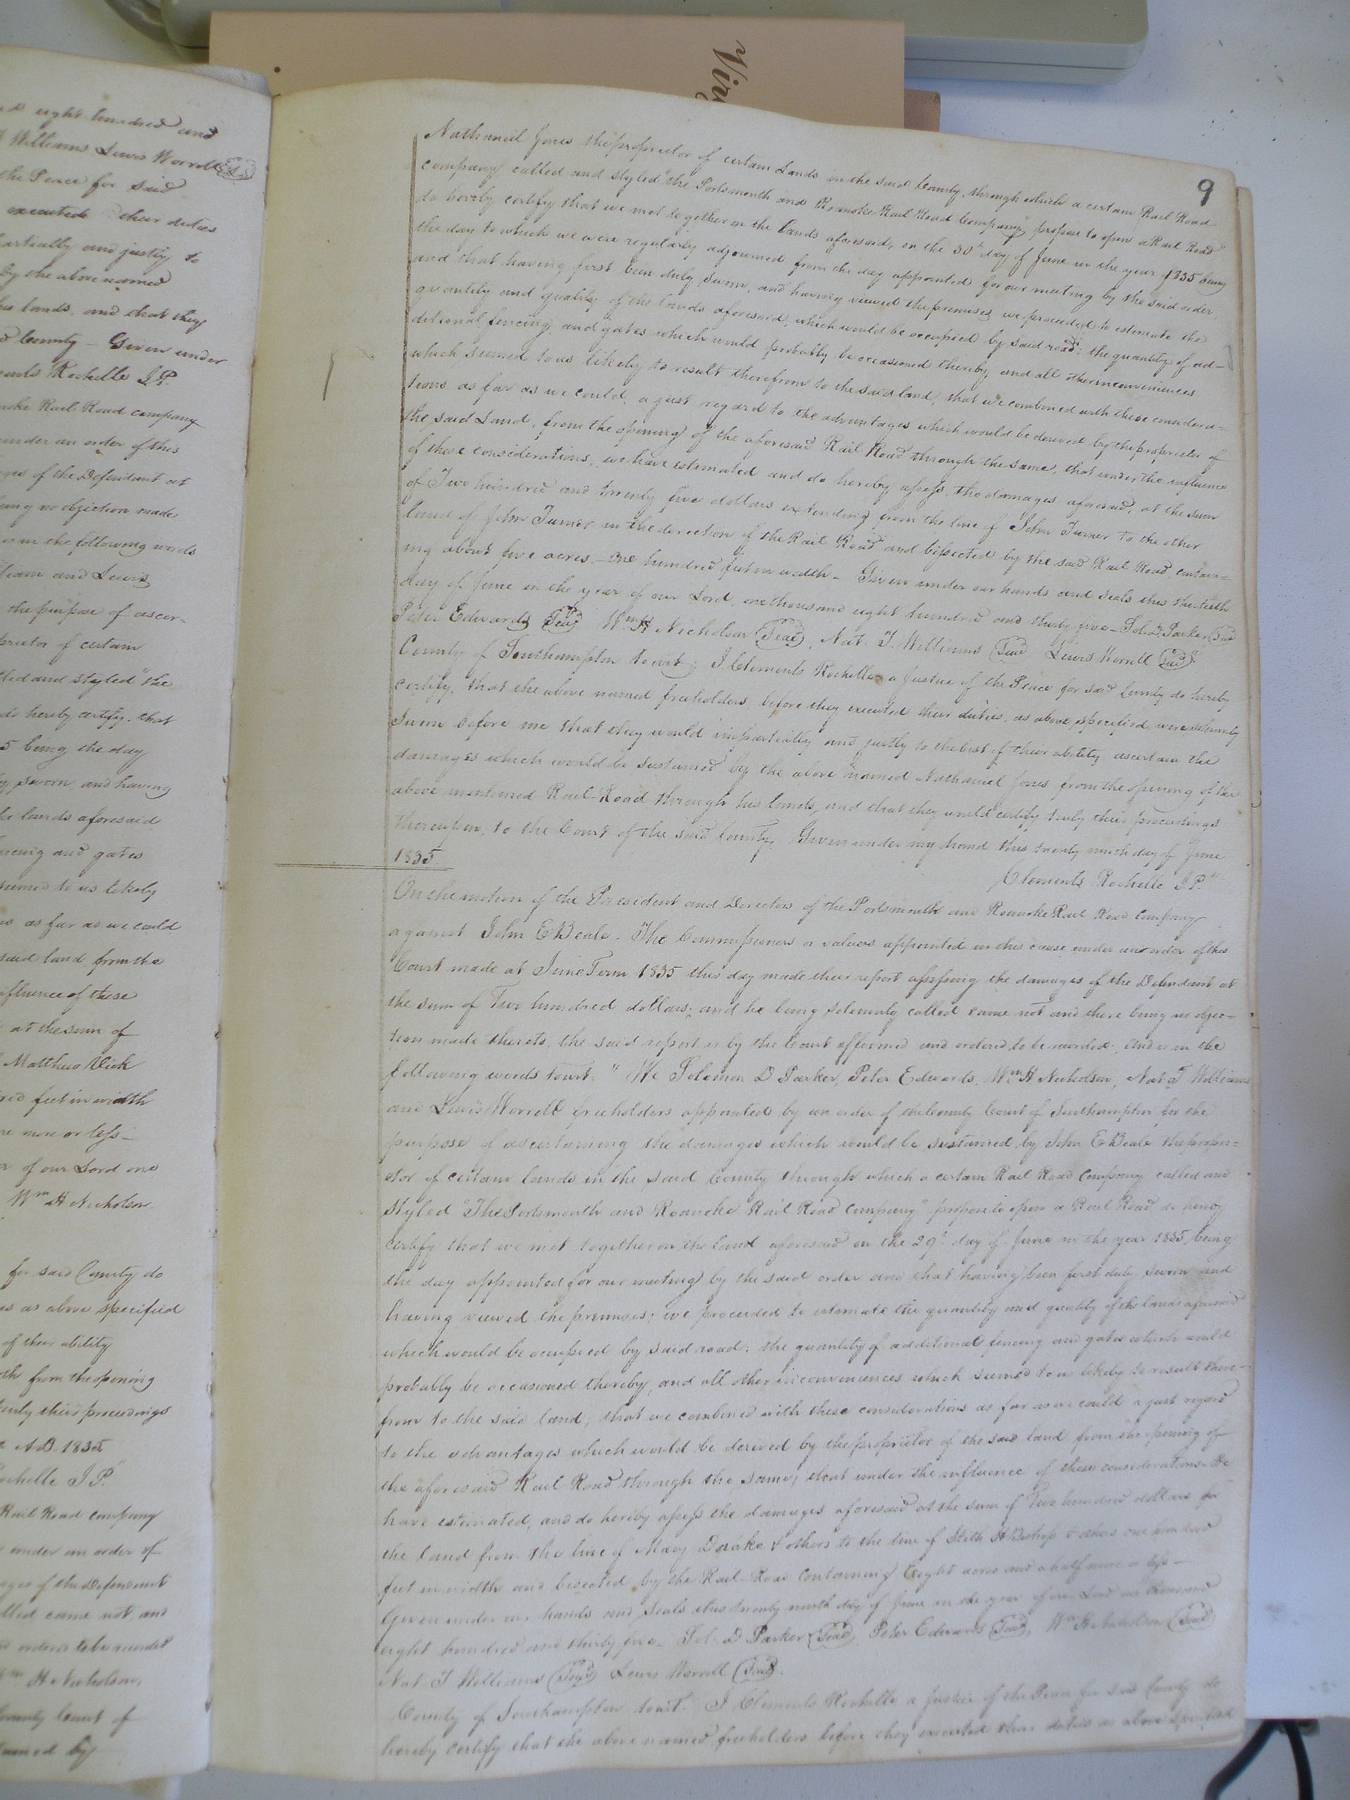 Vir
9
nd eight hundred and
Williams Lewis Worrell
the Peace for said
executed their duties
partially and justly to
by the above named
his lands, and that they
County — Given under
ments Rochelle J.P.
noke Rail Road company
under an order of this
ges of the Defendant at
being no objection made
is in the following words
liam and Lewis
the purpose of ascer-
prietor of certain
lled and styled "the
do hereby certify, that
5 being the day
ly sworn and having
he lands aforesaid
encing and gates
seemed to us likely
ns as far as we could
said land from the
influence of these
at the sum of
Matthew Vick
red feet in width
re more or less —
r of our Lord one
Wm H Nicholson
for said County do
es as above specified
of their ability
th from the opening
truly their proceedings
e A.D. 1835
ochelle J.P.
Rail Road company
under an order of
ages of the Defendant
lled came not and
nd ordered to be recorded
Wm H Nicholson,
County Court of
tained by
Nathaniel Jones the proprietor of certain Lands in the said County, through which a certain Rail Road
company called and styled "the Portsmouth and Roanoke Rail Road Company" propose to open a Rail Road
do hereby certify that we met together on the lands aforesaid, on the 30th day of June in the year 1835 being
the day to which we were regularly adjourned from the day appointed for our meeting by the said order
and that having first been duly sworn, and having viewed the premises, we proceeded to estimate the
quantity and quality of the lands aforesaid, which would be occupied by said road; the quantity of ad-
ditional fencing and gates which would probably be occasioned thereby, and all other inconveniences
which seemed to us likely to result therefrom to the said land; that we combined with these considera-
tions as far as we could, a just regard to the advantages which would be derived by the proprietor of
the said Land, from the opening of the aforesaid Rail Road through the same, that under the influence
of these considerations, we have estimated and do hereby assess, the damages aforesaid, at the sum
of Two hundred and twenty five dollars extending from the line of John Turner to the other
land of John Turner in the direction of the Rail Road and bissected by the said Rail Road contain-
ing about five acres — One hundred feet in width — Given under our hands and seals this thirtieth
day of June in the year of our Lord, one thousand eight hundred and thirty five — Sol. D. Parker Seal
Peter Edwards Seal Wm H Nicholson Seal, Nat. T. Williams Seal Lewis Worrell Seal
County of Southampton towit; I Clements Rochelle a Justice of the Peace for said County do hereby
certify, that the above named freeholders, before they executed their duties, as above specified, were solemnly
sworn before me that they would impartially and justly to the best of their ability ascertain the
damages which would be sustained by the above named Nathaniel Jones from the opening of the
above mentioned Rail-Road through his lands, and that they would certify truly their proceedings
thereupon, to the Court of the said County. Given under my hand this twenty ninth day of June
1835
Clements Rochelle J.P.
On the motion of the President and Directors of the Portsmouth and Roanoke Rail Road Company
against John E Beale — The Commissioners or valuers appointed in this cause under an order of this
Court made at June Term 1835 this day made their report assessing the damages of the Defendant at
the sum of Two hundred dollars; and he being solemnly called came not and there being no objec-
tion made thereto, the said report is by the Court affirmed and ordered to be recorded, and is in the
following words towit: "We Solomon D Parker, Peter Edwards, Wm H Nicholson, Nat T Williams
and Lewis Worrell freeholders appointed by an order of the County Court of Southampton for the
purpose of ascertaining the damages which would be sustained by John E Beale the propri-
etor of certain lands in the said County through which a certain Rail Road Company called and
styled "The Portsmouth and Roanoke Rail Road Company" propose to open a Rail Road do hereby
certify that we met together on the land aforesaid on the 29th day of June in the year 1835, being
the day appointed for our meeting by the said order and that having been first duly sworn and
having viewed the premises; we proceeded to estimate the quantity and quality of the lands aforesaid
which would be occupied by said road; the quantity of additional fencing and gates which would
probably be occasioned thereby, and all other inconveniences which seemed to us likely to result there-
from to the said land; that we combined with these considerations as far as we could a just regard
to the advantages which would be derived by the proprietor of the said land from the opening of
the aforesaid Rail Road through the same; that under the influence of these considerations We
have estimated, and do hereby assess the damages aforesaid at the sum of Two hundred dollars for
the land from the line of Mary Drake & others to the line of Bishop & others one hundred
feet in width and bisected by the Rail-Road containing Eight acres and a half more or less —
Given under our hands and seals this twenty ninth day of June in the year of our Lord one thousand
eight hundred and thirty five. Sol. D Parker Seal, Peter Edwards Seal, Wm H Nicholson Seal
Nat T Williams Seal Lewis Worrell Seal.
County of Southampton towit. I Clements Rochelle a Justice of the Peace for said County do
hereby certify that the above named freeholders before they executed their duties as above specified